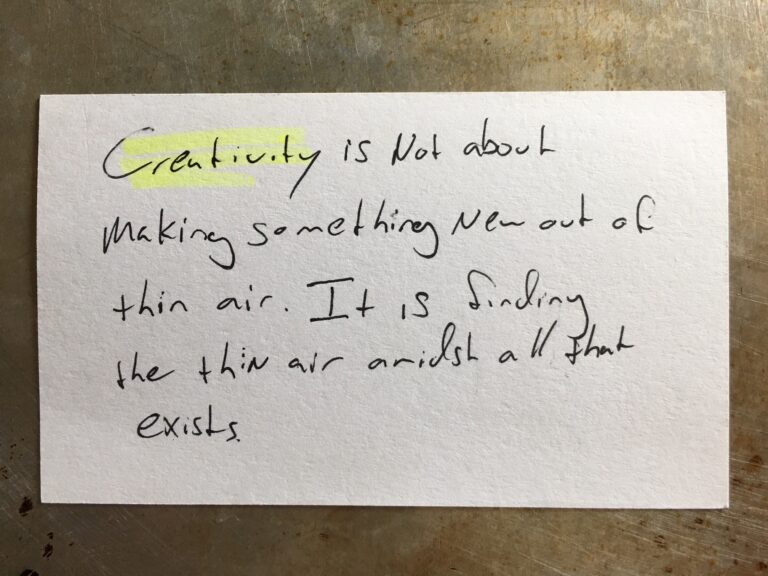 Creativity is Not about
Making something New out of
thin air. It is finding
the thin air amidst all that
exists.